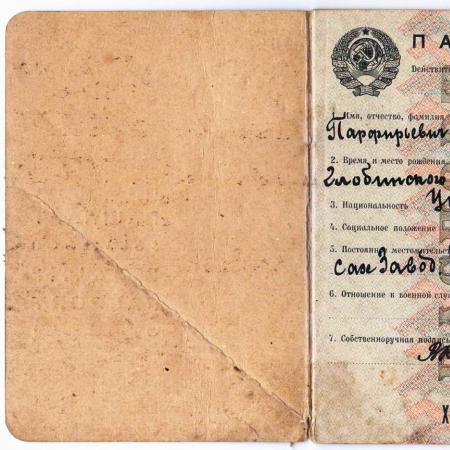 ПА
Действите
1. Имя, отчество, фамилия
Парфирьевич
2. Время и место рождения
Глобинского
3. Национальность
4. Социальное положение
5. Постоянное местожительство
сах Завод.
6. Отношение к военной слу
7. Собственноручная подпись
Х